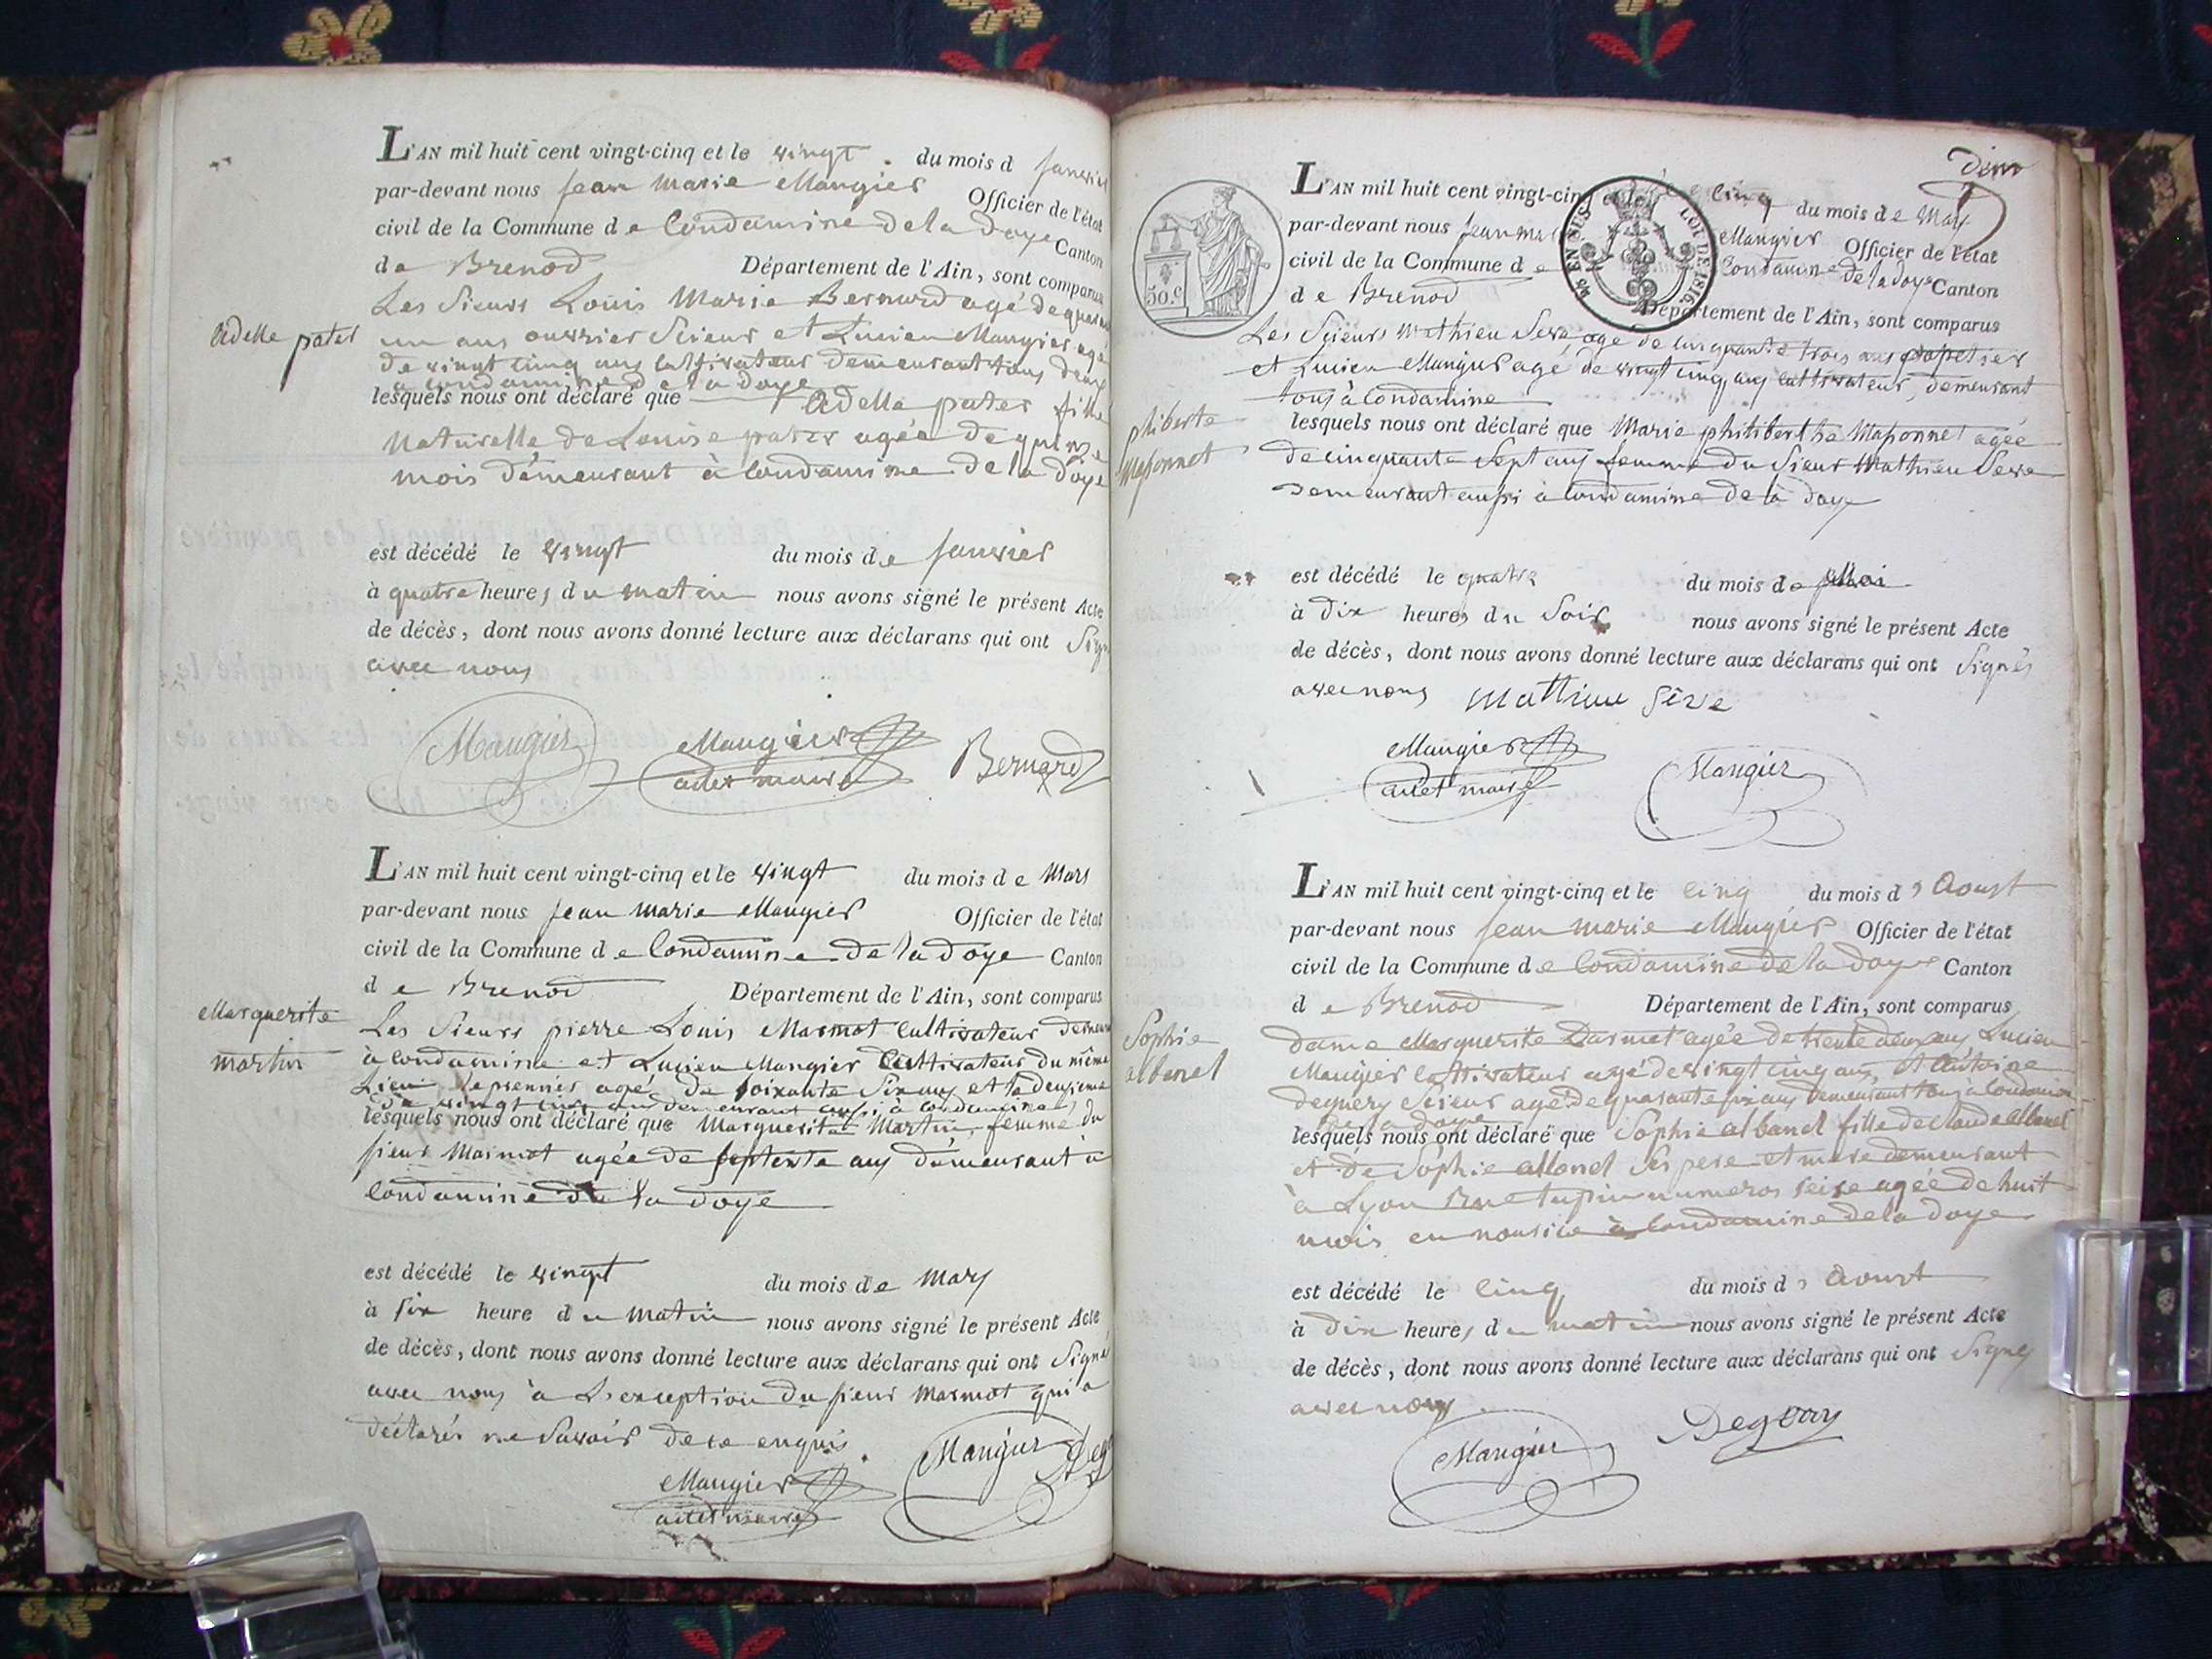 L'AN mil huit cent vingt-cinq et le vingt du mois d Janvier
par-devant nous Jean Marie Maugier Officier de l'état
civil de la Commune de Condamine de la Doye Canton
de Brenod Département de l'Ain, sont comparus
Les Sieurs Louis Marie Bernard agé de
un ans ouvrier Scieur et Lucien Maugier agé
de vingt cinq ans Cultivateur demeurant tous deux
a Condamine de la doye
Adelle pater
lesquels nous ont déclaré que Adelle pater fille
Naturelle de Louise pater agée de quinze
mois démeurant à Condamine de la doye
est décédé le vingt du mois de Janvier
à quatre heures du matin nous avons signé le présent Acte
de décès, dont nous avons donné lecture aux déclarans qui ont
avec nous
Maugier Maugier Bernard
adet maire
L'AN mil huit cent vingt-cinq et le vingt du mois de Mars
par-devant nous Jean Marie Maugier Officier de l'état
civil de la Commune de Condamine de la doye Canton
de Brenod Département de l'Ain, sont comparus
Marguerite
martin
Les Sieurs pierre Louis Marmot Cultivateur
à Condamine et Lucien Maugier Cultivateur du même
Lieu le premier agé de soixante Six ans et le deuxieme
de vingt cinq ans demeurant aussi à Condamine
lesquels nous ont déclaré que Marguerite Martin femme du
sieur Marmot agée de septente ans démeurant à
Condamine de la doye
est décédé le vingt du mois de Mars
à six heure du matin nous avons signé le présent Acte
de décès, dont nous avons donné lecture aux déclarans qui ont Signé
avec nous à L'exception du sieur Marmot qui a
déclarés ne Savoir de ce enquis.
Maugier Maugier
adet maire
50.c
EN SUS LOI DE 1816.
L'AN mil huit cent vingt-cinq et le cinq du mois de Mai
par-devant nous Jean Maugier Officier de l'état
civil de la Commune de Condamine de la doye Canton
de Brenod Département de l'Ain, sont comparus
Les Scieurs Mathieu Seve agé de cinquante trois ans
et Lucien Maugier agé de vingt cinq ans Cultivateur, demeurant
tous à Condamine
philiberte
Massonnet
lesquels nous ont déclaré que Marie philiberthe Massonnet agée
de cinquante Sept ans femme du Sieur Mathieu Seve
demeurant aussi à Condamine de la doye
est décédé le quatre du mois de Mai
à dix heures du Soir nous avons signé le présent Acte
de décès, dont nous avons donné lecture aux déclarans qui ont Signés
avec nous Matthieu Sève
Maugier Maugier
adet maire
L'AN mil huit cent vingt-cinq et le cinq du mois d'Aoust
par-devant nous Jean Marie Maugier Officier de l'état
civil de la Commune de Condamine de la doye Canton
de Brenod Département de l'Ain, sont comparus
Sophie
albanel
dame Marguerite agée de trente deux ans Lucien
Maugier Cultivateur agé de vingt cinq ans, et Antoine
deguery Scieur agé de quarante six ans demeurant tous à Condamine
de la doye
lesquels nous ont déclaré que Sophie albanel fille de Claude albanel
et de Sophie Ses pere et mere demeurant
à Lyon Rue tupin numeros seise agée de huit
mois en nourice à Condamine de la doye
est décédé le cinq du mois d'Aoust
à dix heures du matin nous avons signé le présent Acte
de décès, dont nous avons donné lecture aux déclarans qui ont Signés
avec nous
Maugier